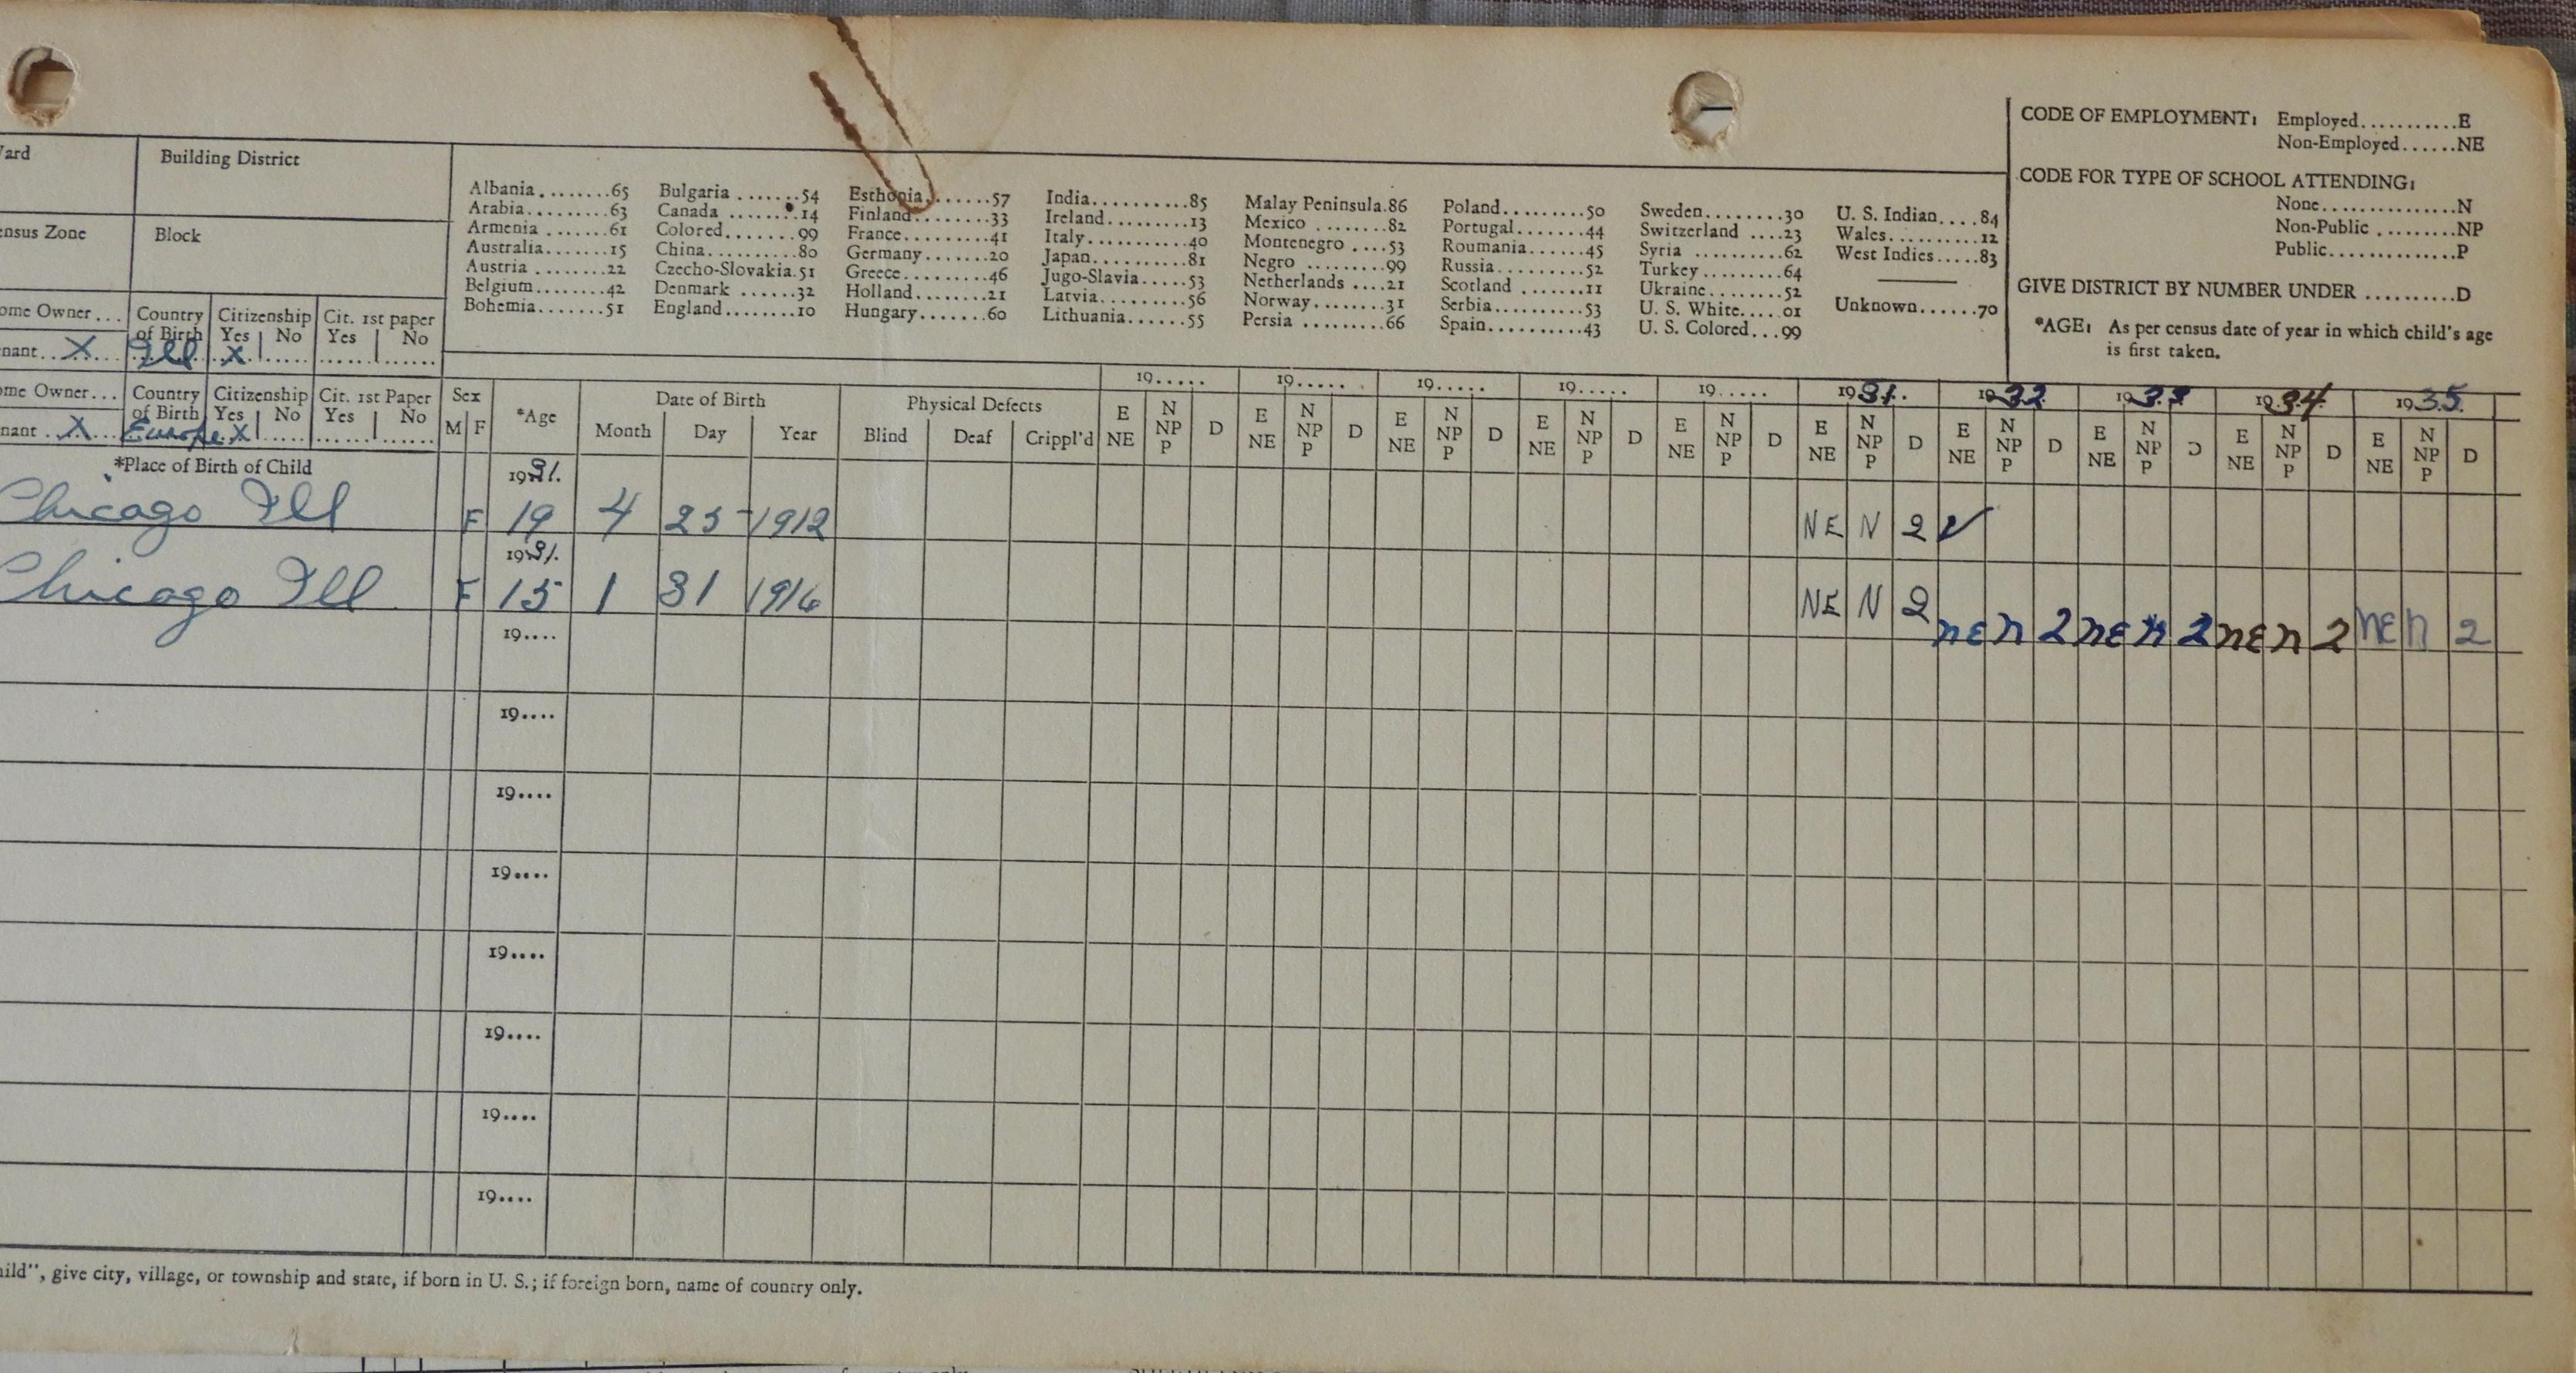 CODE OF EMPLOYMENT: Employed...........E
Non-Employed......NE
CODE FOR TYPE OF SCHOOL ATTENDING:
None..............N
Non-Public .........NP
Public.............P
GIVE DISTRICT BY NUMBER UNDER ..........D
*AGE: As per census date of year in which child's age
is first taken.
Building District
Block
Albania........65 Bulgaria .......54 Esthonia........57 India..........85 Malay Peninsula.86 Poland.........50 Sweden........30 U. S. Indian....84
Arabia.........63 Canada ........14 Finland........33 Ireland.........13 Mexico ........82 Portugal.......44 Switzerland ....23 Wales..........12
Armenia .......61 Colored.......99 France.........41 Italy ..........40 Montenegro ....53 Roumania......45 Syria ..........62 West Indies.....83
Australia.......15 China..........80 Germany.......20 Japan..........81 Negro .........99 Russia.........52 Turkey ........64
Austria ........22 Czecho-Slovakia.51 Greece.........46 Jugo-Slavia.....53 Netherlands ....21 Scotland .......11 Ukraine........52
Belgium.......42 Denmark ......32 Holland.......21 Latvia.........56 Norway........31 Serbia.........53 U. S. White.....01 Unknown......70
Bohemia.......51 England........10 Hungary.......60 Lithuania......55 Persia .........66 Spain..........43 U. S. Colored...99
Owner... Country of Birth Citizenship Yes No Cit. 1st paper Yes No
X Ill X
Owner... Country of Birth Citizenship Yes No Cit. 1st Paper Yes No
X Europe X
Sex *Age Date of Birth Physical Defects 19..... 19..... 19..... 19..... 19..... 1931. 1932 1933 1934 1935
M F Month Day Year Blind Deaf Crippl'd E NE N NP P D E NE N NP P D E NE N NP P D E NE N NP P D E NE N NP P D E NE N NP P D E NE N NP P D E NE N NP P D E NE N NP P D E NE N NP P D
*Place of Birth of Child
1931.
Chicago Ill F 19 4 25 1912 NE N 2 ✓
1931.
Chicago Ill F 15 1 31 1916 NE N 2 NE N 2 NE N 2 NE N 2 NE N 2
19....
19....
19....
19....
19....
19....
19....
19....
give city, village, or township and state, if born in U. S.; if foreign born, name of country only.